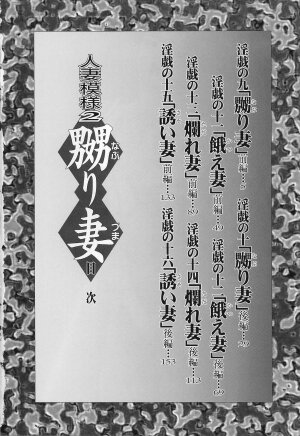 淫戯の九「嬲り妻」前編…5
淫戯の十「嬲り妻」後編…29
淫戯の十一「餓え妻」前編…49
淫戯の十二「餓え妻」後編…69
淫戯の十三「爛れ妻」前編…89
淫戯の十四「爛れ妻」後編…113
淫戯の十五「誘い妻」前編…133
淫戯の十六「誘い妻」後編…153
人妻模様2
嬲り妻
なぶ
づま
目次